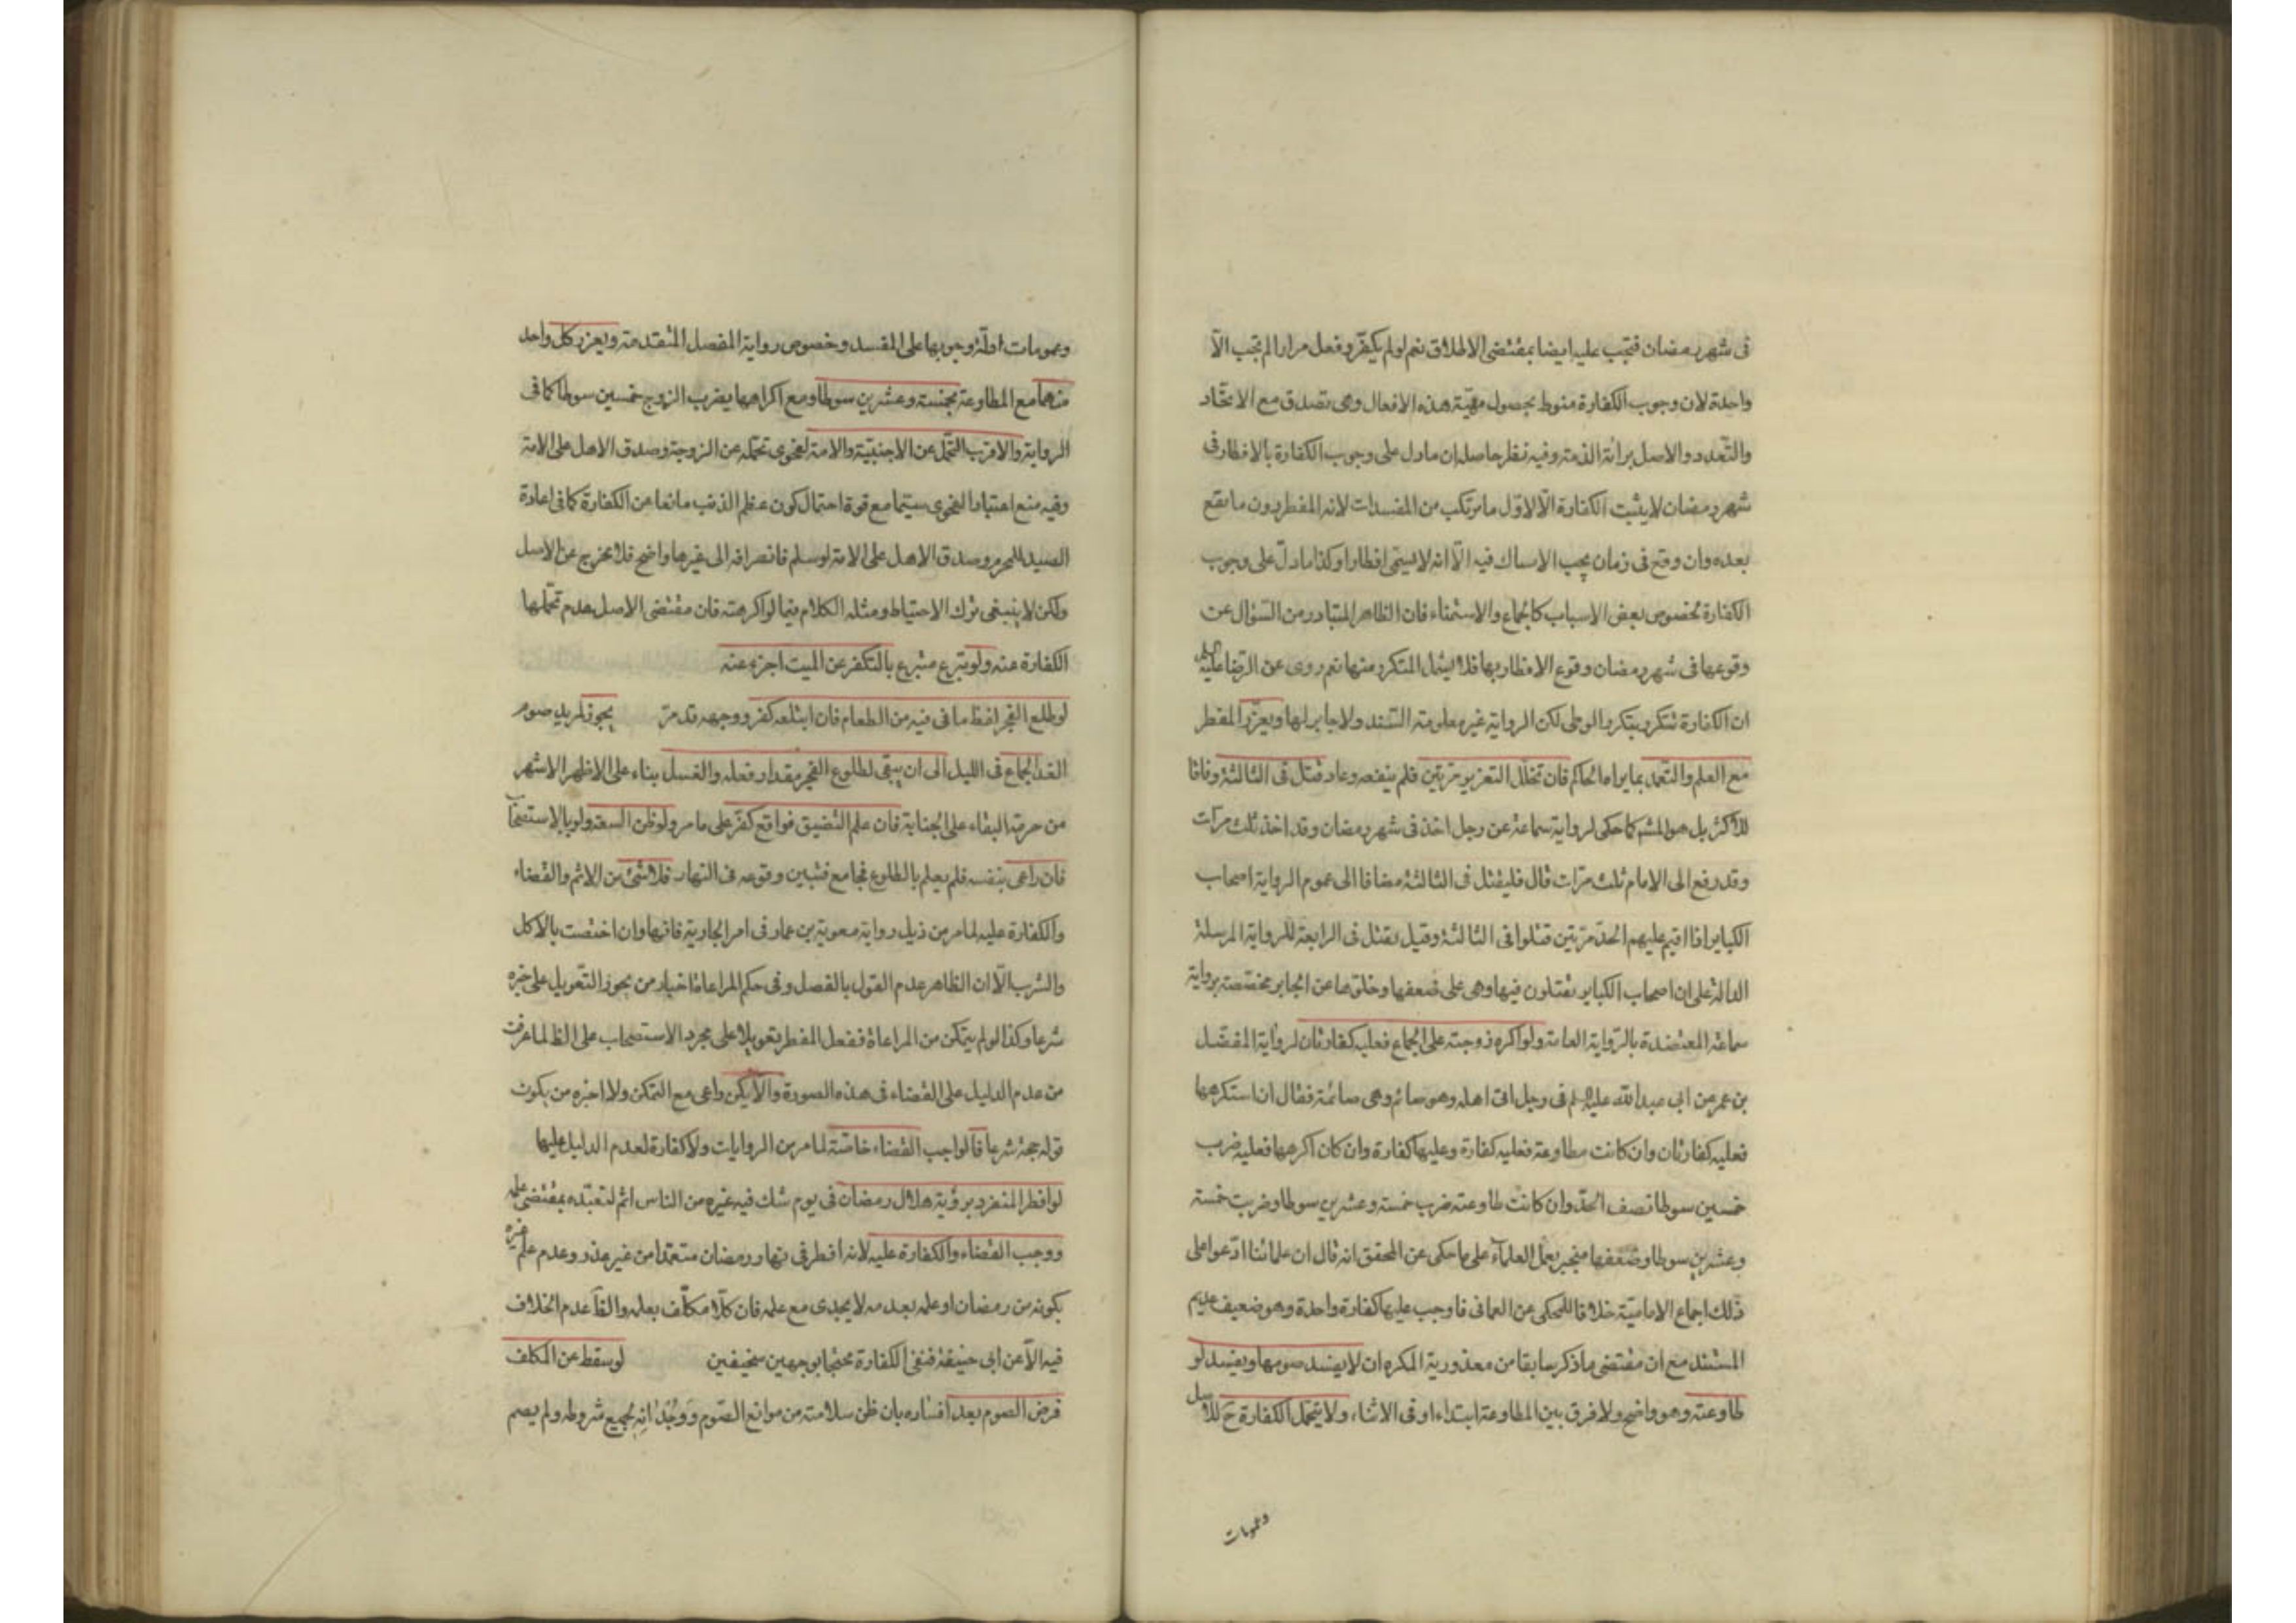 فى شهر رمضان فتجب عليه ايضا بمقتضى الاطلاق نعم لو لم يكفّر و فعل مرارا لم تجب الّا
واحدة لان وجوب الكفارة منوط بحصول مهيّة هذه الافعال وهى تصدق مع الاتحاد
والتعدد والاصل برائة الذمة وفيه نظر حاصله ان ما دل على وجوب الكفارة بالافطار فى
شهر رمضان لا يثبت الكفارة الّا لاوّل ما يرتكب من المفسدات لانه المفطر دون ما يقع
بعده وان وقع فى زمان يجب الامساك فيه الّا انه لا يسمى افطارا وكذا ما دلّ على وجوب
الكفارة بخصوص بعض الاسباب كالجماع والاستمناء فان الظاهر المتبادر من السؤال عن
وقوعها فى شهر رمضان وقوع الافطار بها فلا يشمل المتكرر منها نعم روى عن الرضا عليه السلام
ان الكفارة تتكرر بتكرر الوطى لكن الرواية غير معلومة السند ولا جابر لها ويعزّر المفطر
مع العلم والتعمد بما يراه الحاكم فان تخلّل التعزير مرتين فلم ينفعه وعاد قتل فى الثالثة وفاقا
للاكثر بل هو المشهـ كما حكى لرواية سماعة عن رجل اخذ فى شهر رمضان وقد اخذ ثلث مرّات
وقد رفع الى الامام ثلث مرّات قال فليقتل فى الثالثة مضافا الى عموم الرواية اصحاب
الكباير اذا اقيم عليهم الحدّ مرّتين قتلوا فى الثالثة وقيل يقتل فى الرابعة للرواية المرسلة
الدالة على ان اصحاب الكباير يقتلون فيها وهى على ضعفها وخلوّها عن الجابر مخصّصة برواية
سماعة المعتضدة بالرّواية العامة ولو اكره زوجته على الجماع فعليه كفارتان لرواية المفضّل
بن عمر عن ابى عبد الله عليه السلم فى رجل اتى اهله وهو صائم وهى صائمة فقال ان استكرهها
فعليه كفارتان وان كانت مطاوعة فعليه كفارة وعليها كفارة وان كان اكرهها فعليه ضرب
خمسين سوطا نصف الحدّ وان كانت طاوعته ضرب خمسة وعشرين سوطا وضربت خمسة
وعشرين سوطا وضعفها منجبر بعمل العلماء على ما حكى عن المحقق انه قال ان علمائنا ادّعوا على
ذلك اجماع الاماميّة خلافا للمحكى عن العمانى فاوجب عليها كفارة واحدة وهو ضعيف عديم
المستند مع ان مقتضى ما ذكر سابقا من معذورية المكره ان لا يفسد صومها ويفسد لو
طاوعته وهو واضح ولا فرق بين المطاوعة ابتداء او فى الاثناء ولا يتحمل الكفارة ح للاصل
وعمومات
وعمومات ادلّة وجوبها على المفسد وخصوص رواية المفضل المتقدمة ويعزر كل واحد
منهما مع المطاوعة بخمسة وعشرين سوطا ومع اكراهها يضرب الزوج خمسين سوطا كما فى
الرواية والاقرب التحمّل عن الاجنبيّة والامة لفحوى تحمّله عن الزوجة وصدق الاهل على الامة
وفيه منع اعتبار الفحوى سيّما مع قوة احتمال كون عظم الذنب مانعا عن الكفارة كما فى اعادة
الصيد للمحرم وصدق الاهل على الامة لو سلم فانصرافه الى غيرها واضح فلا مخرج عن الاصل
ولكن لا ينبغى ترك الاحتياط ومثله الكلام فيما لو اكرهته فان مقتضى الاصل عدم تحملها
الكفارة عنه ولو تبرع متبرع بالتكفر عن الميت اجزء عنه
لو طلع الفجر لفظ ما فى فيه من الطعام فان ابتلعه كفر ووجهه قد مرّ يجوز لمريد صوم
الغد الجماع فى الليل الى ان يبقى لطلوع الفجر مقدار فعله والغسل بناء على الاظهر الاشهر
من حرمة البقاء على الجنابة فان علم التضيق فواقع كفّر على ما مر ولو ظن السعة ولو بالاستصحاب
فان راعى بنفسه فلم يعلم بالطلوع فجامع فتبين وقوعه فى النهار فلا شئ من الاثم والقضاء
والكفارة عليه لما مر من ذيل رواية معوية بن عمار فى امر الجارية فانها وان اختصت بالاكل
والشرب الّا ان الظاهر عدم القول بالفصل وفى حكم المراعاة اخبار من يجوز التّعويل على خبره
شرعا وكذا لو لم يتمكن من المراعاة ففعل المفطر تعويلا على مجرد الاستصحاب على الظ لما عرفت
من عدم الدليل على القضاء فى هذه الصورة والّا يكن راعى مع التمكن ولا اخبره من يكون
قوله حجة شرعا فالواجب القضاء خاصّة لما مر من الروايات ولا كفارة لعدم الدليل عليها
لو افطر المنفرد برؤية هلال رمضان فى يوم شك فيه غيره من الناس اثم لتعبّده بمقتضى علمه
ووجب القضاء والكفارة عليه لانه افطر فى نهار رمضان متعمّدا من غير عذر وعدم علم غيره
بكونه من رمضان او علمه بعدمه لا يجدى مع علمه فان كلّا مكلّف بعلمه والظاّ عدم الخلاف
فيه الّا عن ابى حنيفة فنفى الكفارة محتجا بوجهين سخيفين لو سقط عن المكلف
فرض الصوم بعد افساده بان ظن سلامته من موانع الصّوم ووجْدانِه لجميع شروطه ولم يصم